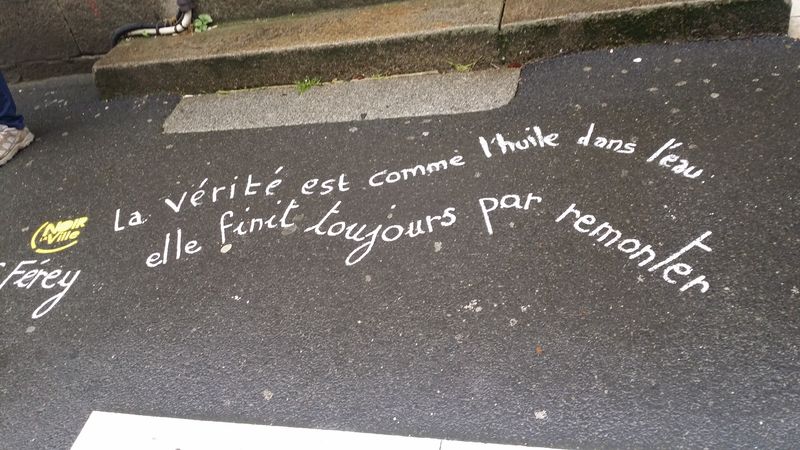 La vérité est comme l'huile dans l'eau.
elle finit toujours par remonter
NOIR
la Ville
Férey